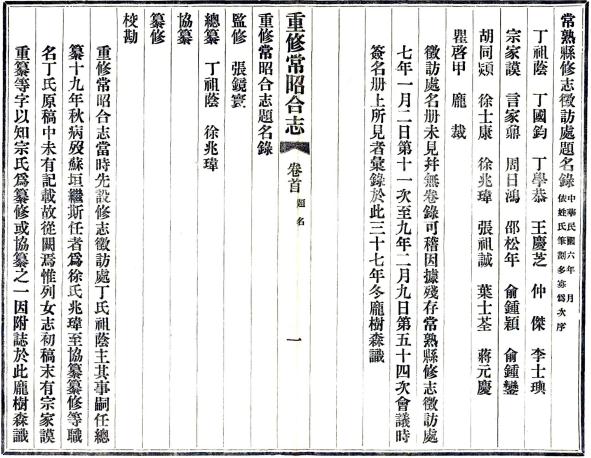 常熟縣修志徵訪處題名錄 中華民國六年 月依姓氏筆劃多寡爲次序
丁祖蔭 丁國鈞 丁學恭 王慶芝 仲 傑 李士璵
宗家謨 言家鼐 周日鴻 邵松年 俞鍾穎 俞鍾鑾
胡同潁 徐士康 徐兆瑋 張祖誠 葉士荃 蔣元慶
瞿啓甲 龐 裁
徵訪處名册未見幷無卷錄可稽因據殘存常熟縣修志徵訪處
七年一月二日第十一次至九年二月九日第五十四次會議時
簽名册上所見者彙錄於此三十七年冬龐樹森識
重修常昭合志 卷首 題名 一
重修常昭合志題名錄
監修 張鏡寰
總纂 丁祖蔭 徐兆瑋
協纂
纂修
校勘
重修常昭合志當時先設修志徵訪處丁氏祖蔭主其事嗣任總
纂十九年秋病歿蘇垣繼斯任者爲徐氏兆瑋至協纂纂修等職
名丁氏原稿中未有記載故從闕焉惟列女志初稿末有宗家謨
重纂等字以知宗氏爲纂修或協纂之一因附誌於此龐樹森識